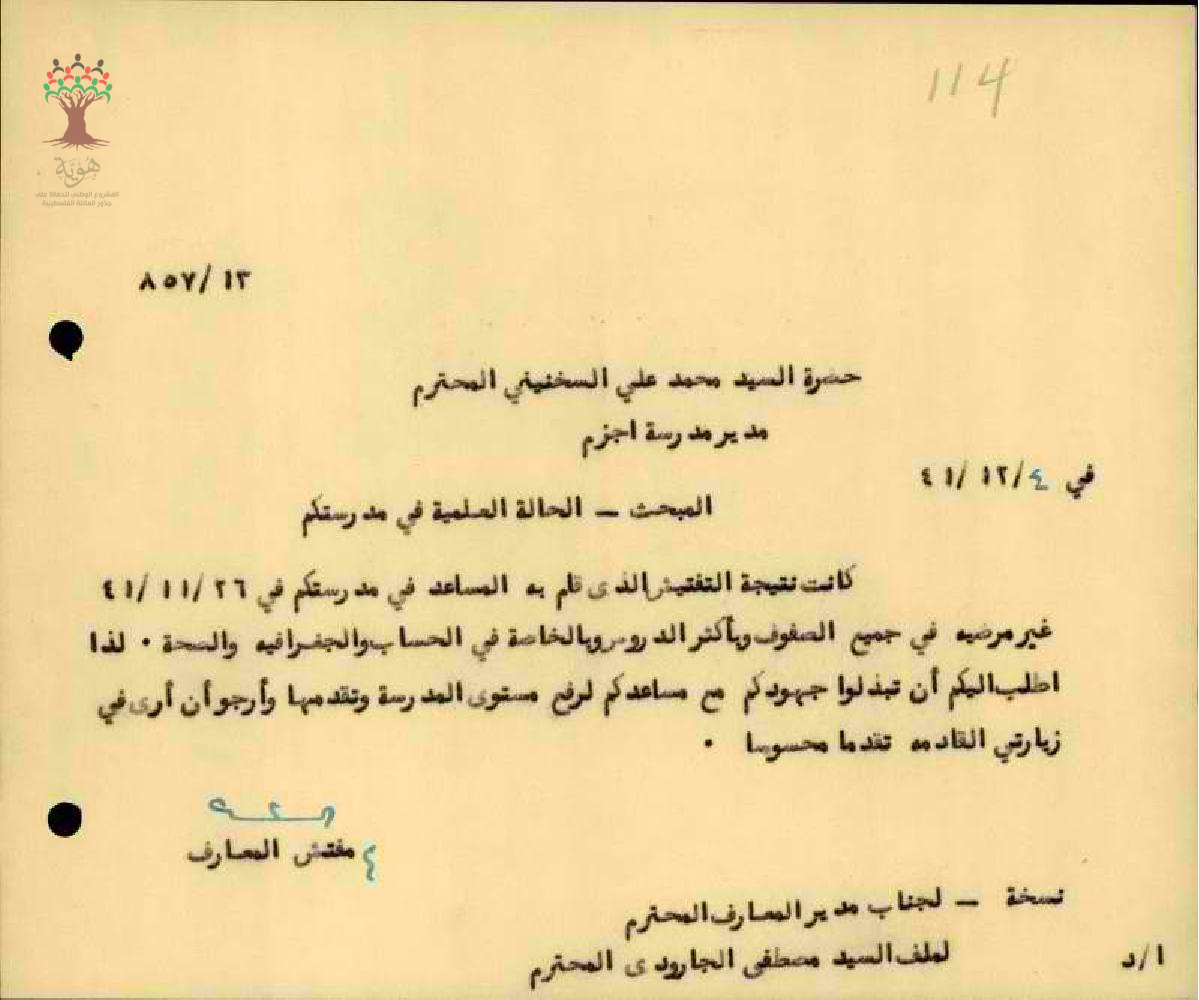 114
هوية
المشروع الوطني للحفاظ على
جذور العائلة الفلسطينية
٨٥٧/ ١٣
حضرة السيد محمد علي السخنيني المحترم
مدير مدرسة اجزم
في ٤/ ١٢/ ٤١
المبحث – الحالة العلمية في مدرستكم
كانت نتيجة التفتيش الذى قام به المساعد في مدرستكم في ٢٦/ ١١/ ٤١
غير مرضيه في جميع الصفوف وبأكثر الدروس وبالخاصة في الحساب والجغرافيه والصحة ٠ لذا
اطلب اليكم أن تبذلوا جهودكم مع مساعدكم لرفع مستوى المدرسة وتقدمها وأرجو أن أرى في
زيارتي القادمه تقدما محسوسا ٠
٤ مفتش المعارف
نسخة – لجناب مدير المعارف المحترم
لملف السيد مصطفى الجارودى المحترم
ا/د